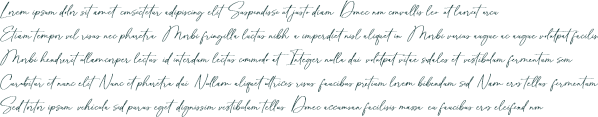 Lorem ipsum dolor sit amet, consectetur adipiscing elit. Suspendisse at justo diam. Donec non convallis leo, at laoreet arcu.
Etiam tempor vel risus nec pharetra. Morbi fringilla luctus nibh, a imperdiet nisl aliquet in. Morbi varius augue ac augue volutpat facilis
Morbi hendrerit ullamcorper lectus, id interdum lectus commodo at. Integer nulla dui, volutpat vitae sodales et, vestibulum fermentum sem.
Curabitur et nunc elit. Nunc et pharetra dui. Nullam aliquet ultrices risus, faucibus pretium lorem bibendum sed. Nam eros tellus, fermentum
Sed tortor ipsum, vehicula sed purus eget, dignissim vestibulum tellus. Donec accumsan facilisis massa, eu faucibus eros eleifend non.